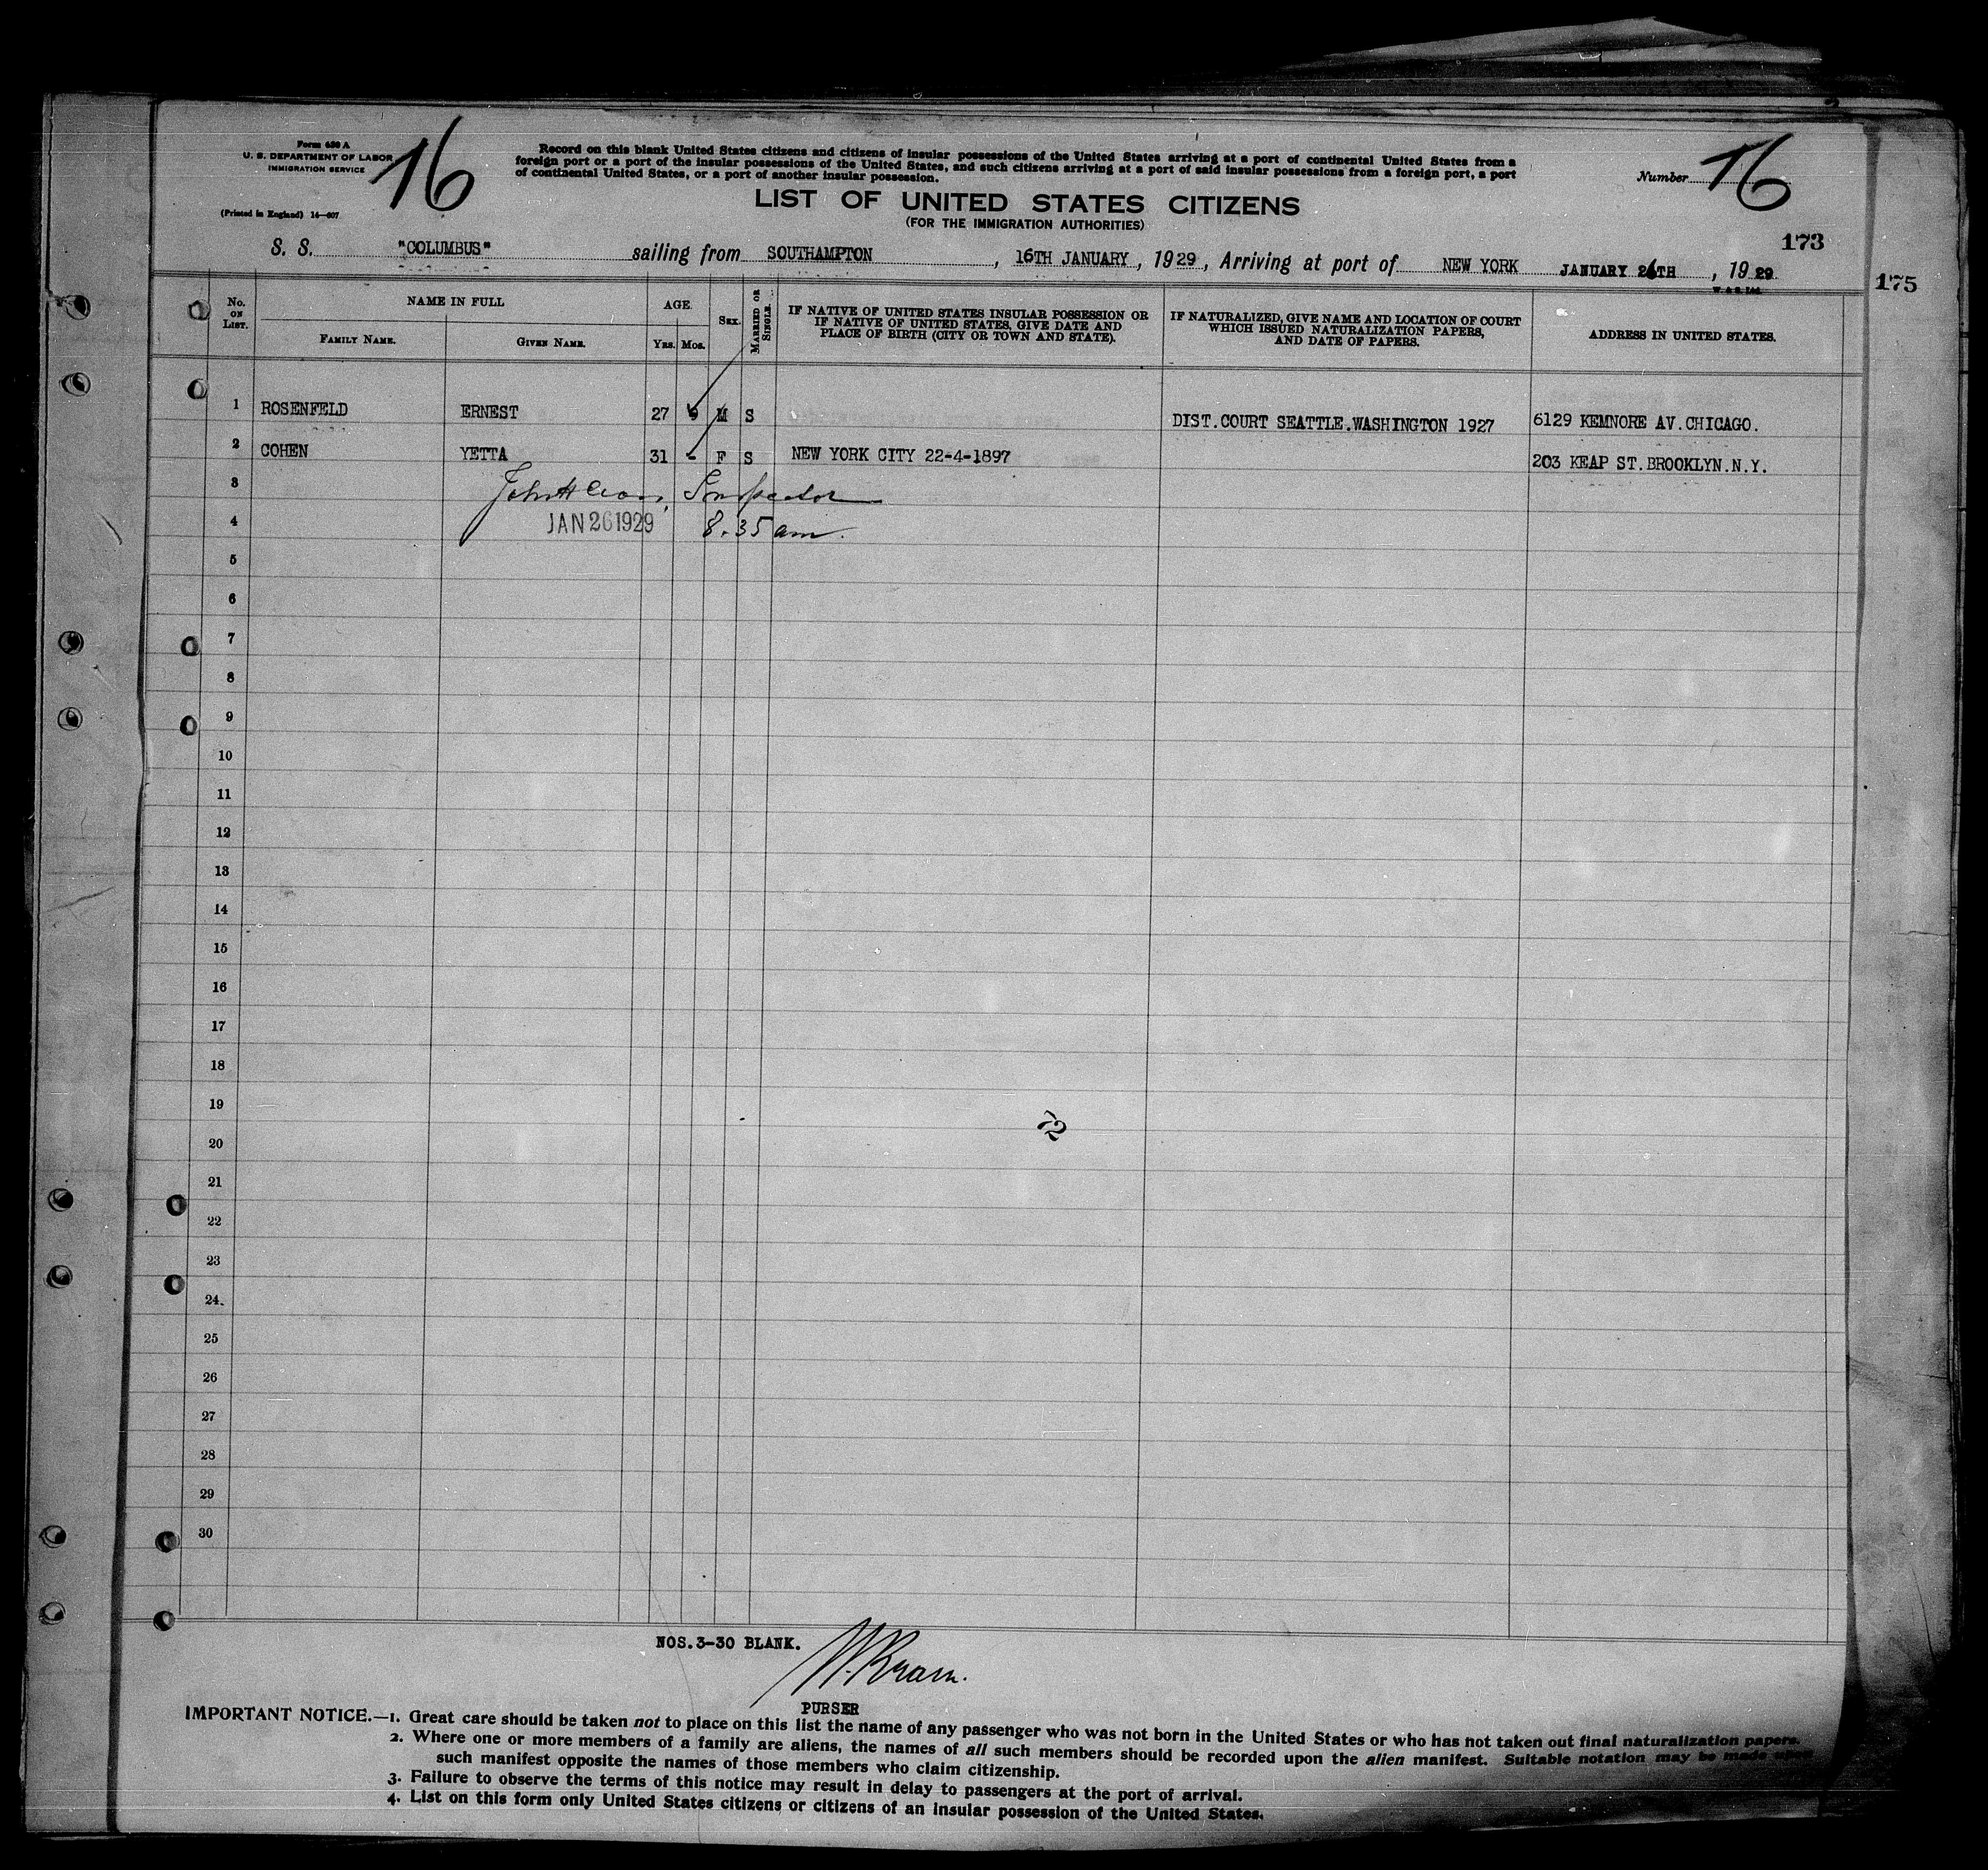 Form 630 A
U. S. DEPARTMENT OF LABOR
IMMIGRATION SERVICE
(Printed in England) 14—607
16
Record on this blank United States citizens and citizens of insular possessions of the United States arriving at a port of continental United States from a
foreign port or a port of the insular possessions of the United States, and such citizens arriving at a port of said insular possessions from a foreign port, a port
of continental United States, or a port of another insular possession.
Number 16
LIST OF UNITED STATES CITIZENS
(FOR THE IMMIGRATION AUTHORITIES)
173
175
S. S. "COLUMBUS" sailing from SOUTHAMPTON, 16TH JANUARY, 1929, Arriving at port of NEW YORK JANUARY 26TH, 1929
W. & S. Ltd.
No. ON LIST. NAME IN FULL FAMILY NAME. GIVEN NAME. AGE. YRS. MOS. SEX. MARRIED OR SINGLE. IF NATIVE OF UNITED STATES INSULAR POSSESSION OR IF NATIVE OF UNITED STATES, GIVE DATE AND PLACE OF BIRTH (CITY OR TOWN AND STATE). IF NATURALIZED, GIVE NAME AND LOCATION OF COURT WHICH ISSUED NATURALIZATION PAPERS, AND DATE OF PAPERS. ADDRESS IN UNITED STATES.
1 ROSENFELD ERNEST 27 9 M S DIST.COURT SEATTLE.WASHINGTON 1927 6129 KEMNORE AV.CHICAGO.
2 COHEN YETTA 31 - F S NEW YORK CITY 22-4-1897 203 KEAP ST.BROOKLYN.N.Y.
3 John H Inspector
4 JAN 26 1929 8.35 am.
5
6
7
8
9
10
11
12
13
14
15
16
17
18
19
72
20
21
22
23
24
25
26
27
28
29
30
NOS.3-30 BLANK.
PURSER
IMPORTANT NOTICE.—1. Great care should be taken not to place on this list the name of any passenger who was not born in the United States or who has not taken out final naturalization papers.
2. Where one or more members of a family are aliens, the names of all such members should be recorded upon the alien manifest. Suitable notation may be made upon
such manifest opposite the names of those members who claim citizenship.
3. Failure to observe the terms of this notice may result in delay to passengers at the port of arrival.
4. List on this form only United States citizens or citizens of an insular possession of the United States.